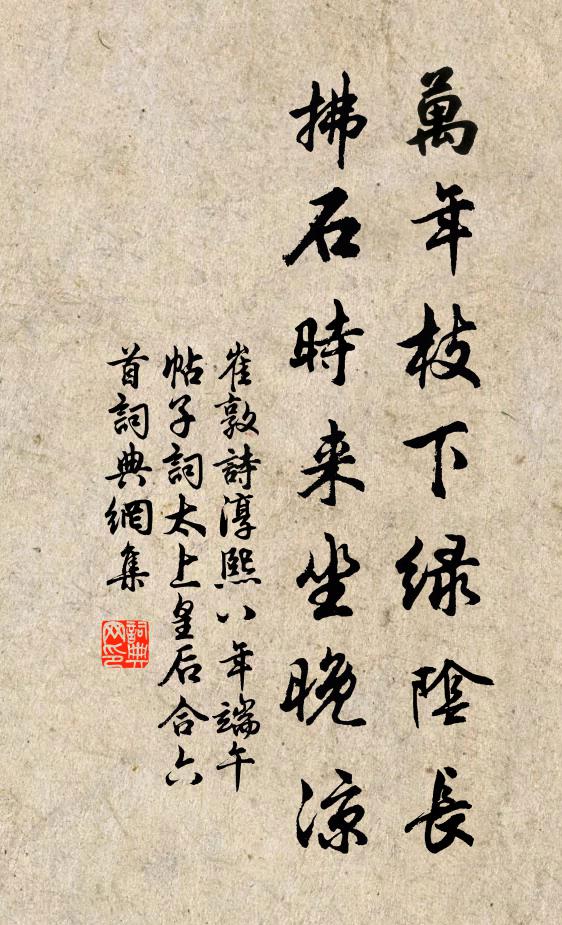 萬年枝下緑陰長
拂石時来坐晚涼
崔敦詩淳熙八年端午
帖子詞太上皇后合六
首詞典網集
詞典
网印